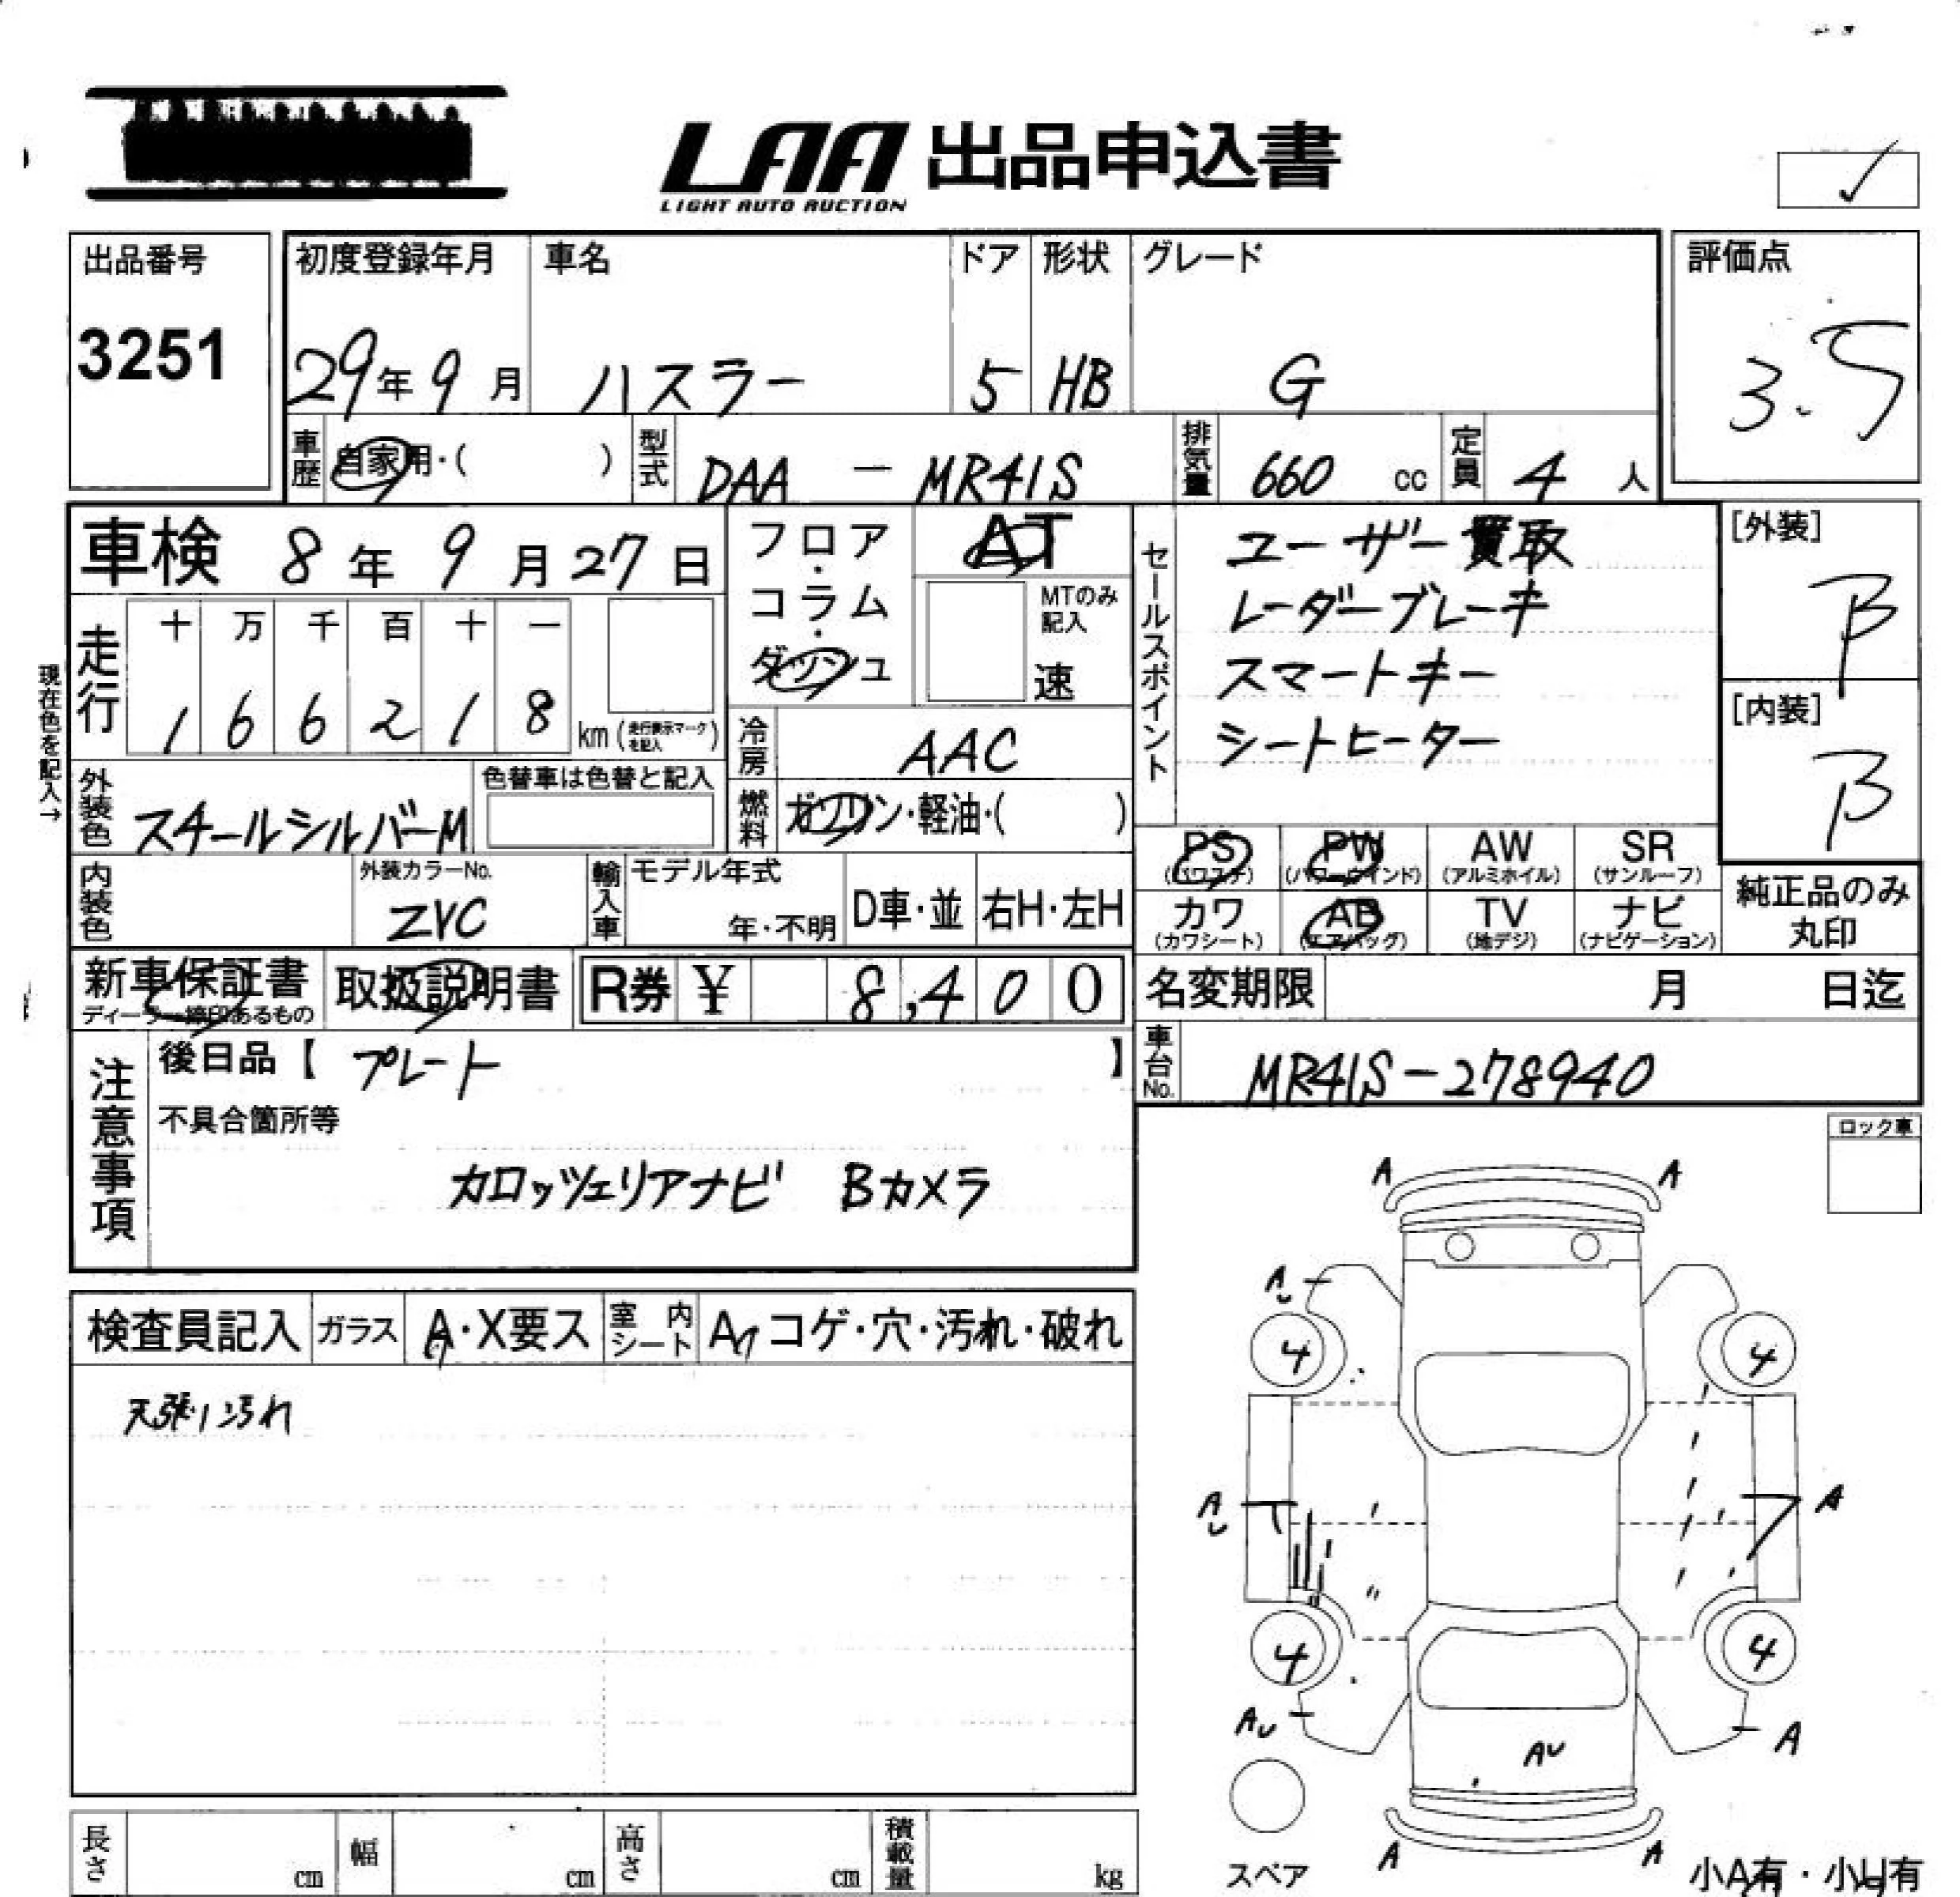 LAA 出品申込書
LIGHT AUTO AUCTION
出品番号
3251
初度登録年月
29年 9月
車名
ハスラー
ドア
5
形状
HB
グレード
G
評価点
3.5
車歴
自家用・( )
型式
DAA - MR41S
排気量
660 cc
定員
4 人
車検 8年 9月 27日
走行
十 万 千 百 十 一
1 6 6 2 1 8 km (走行表示マークを記入)
現在色を記入→
フロア・コラム・ダッシュ
AT
MTのみ記入
速
冷房
AAC
燃料
ガソリン・軽油・( )
セールスポイント
ユーザー買取
レーダーブレーキ
スマートキー
シートヒーター
[外装]
B
[内装]
B
外装色
スチールシルバーM
色替車は色替と記入
内装色
外装カラーNo.
ZVC
輸入車
モデル年式
年・不明
D車・並
右H・左H
PS
(パワステ)
PW
(パワーウインド)
AW
(アルミホイル)
SR
(サンルーフ)
カワ
(カワシート)
AB
(エアバッグ)
TV
(地デジ)
ナビ
(ナビゲーション)
純正品のみ
丸印
新車保証書
ディーラー締印あるもの
取扱説明書
R券 ¥ 8,400
名変期限 月 日迄
車台No.
MR41S-278940
注意事項
後日品【 プレート 】
不具合箇所等
カロッツェリアナビ Bカメラ
ロック車
検査員記入
ガラス
A・X要ス
室内シート
A・コゲ・穴・汚れ・破れ
天張り汚れ
A A
A
4 4
A A
4 4
AU A
AU
A A
スペア
小A有・小U有
長さ cm
幅 cm
高さ cm
積載量 kg